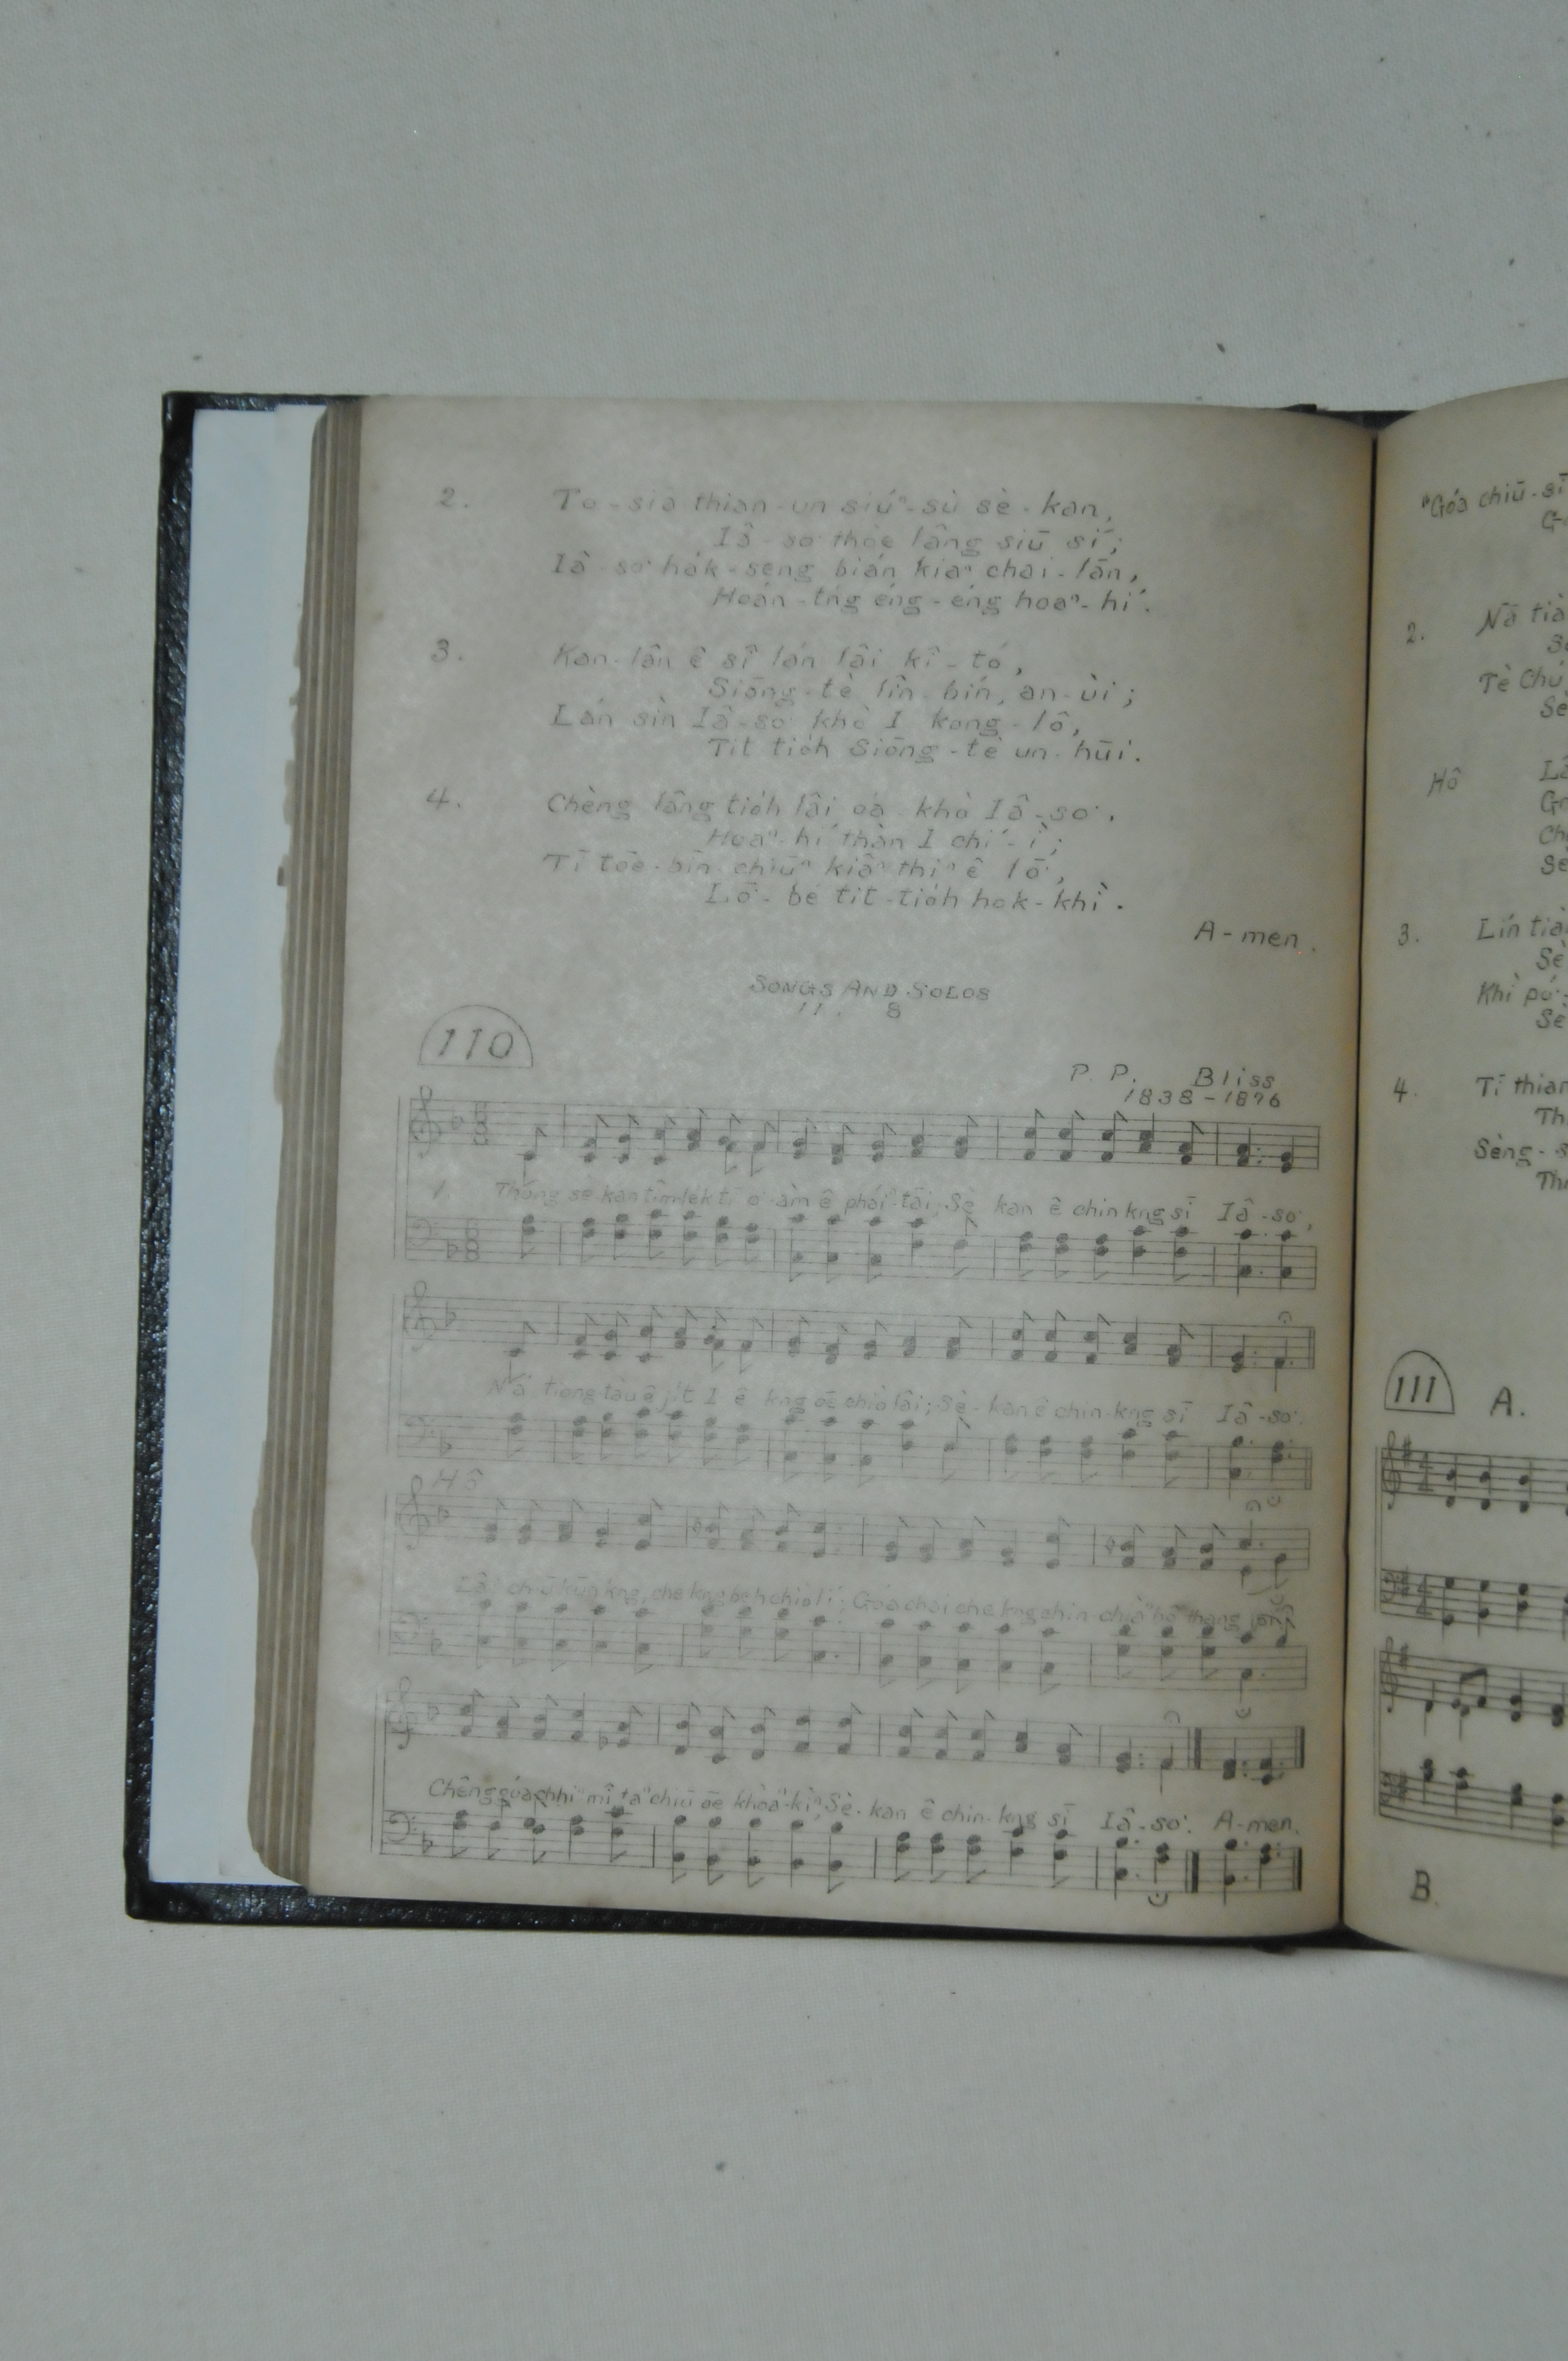 2. To-siā thian-un siúⁿ-sù sè-kan,
Iâ-so͘ thòe lâng siū sí;
Iâ-so͘ ha̍k-seng bián kiaⁿ chai-lān,
Hoán-tńg éng-éng hoaⁿ-hí.
3. Kan-lân ê sî lán lâi kî-tó,
Siōng-tè lîn-bín, an-ùi;
Lán sìn Iâ-so͘ khò I kong-lô,
Tit tio̍h Siōng-tè un-hūi.
4. Chèng lâng tio̍h lâi óa-khò Iâ-so͘,
Hoaⁿ-hí thàn I chí-ì;
Tī tōe-bīn chiūⁿ kiâⁿ thiⁿ ê lō͘,
Lō͘-bé tit-tio̍h hok-khì.
A-men.
SONGS AND SOLOS
11. 8
110
P. P. Bliss
1838-1876
1. Thong sè kan tîm-lék tī o͘-àm ê pháiⁿ-tāi; Sè kan ê chin kng sī Iâ-so͘,
Nā tiong-tàu ê ji̍t I ê kng ōe chiò lâi; Sè-kan ê chin-kng sī Iâ-so͘.
Hô
Lâi chiū-kūn kng, che kng beh chiò lí; Góa chai che kng chin chiàⁿ bô thang
Chêng góa chhiⁿ-mî taⁿ chiū ōe khòaⁿ-kìⁿ; Sè-kan ê chin-kng sī Iâ-so͘. A-men.
"Góa chiū-sī
2. Nā tià
Tè Chú
Sè
Hô
3. Lín tià
Sè
Khì pó
4. Tī thian
Th
Sèng-s
111 A.
B.